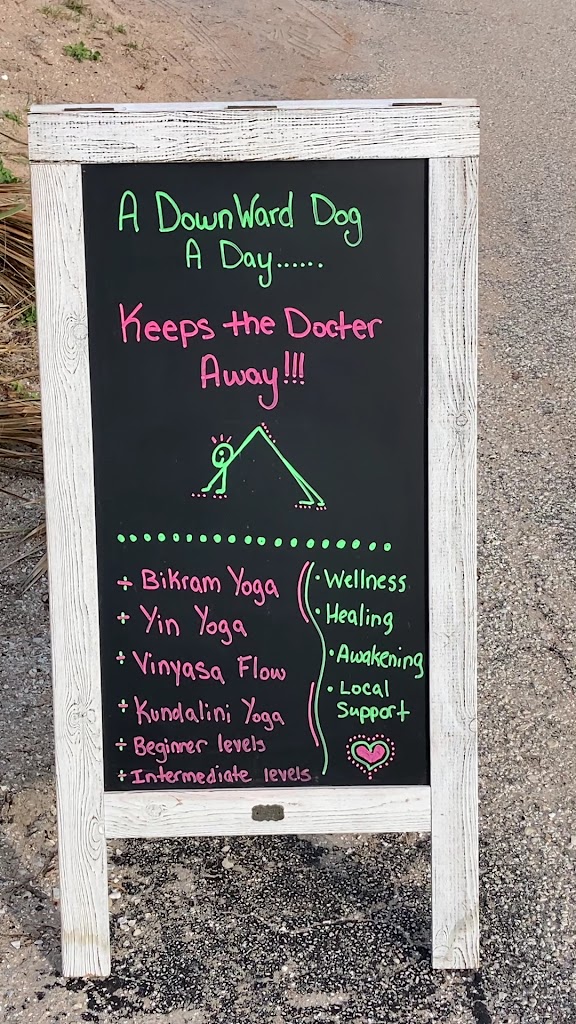 A DownWard Dog
A Day......
Keeps the Docter
Away!!!
+ Bikram Yoga
+ Yin Yoga
+ Vinyasa Flow
+ Kundalini Yoga
+ Beginner levels
+ Intermediate levels
· Wellness
· Healing
· Awakening
· Local
Support